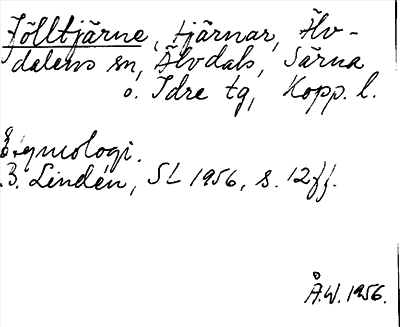 Jölltjärne, tjärnar, Älv-
dalens sn, Älvdals, Särna
o. Idre tg, Kopp. l.
Etymologi.
B. Lindén, SL 1956, s. 12ff.
Å.W. 1956.